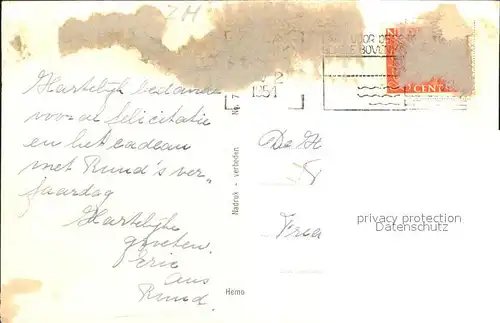 ZH
VOOR DE
BOVEN
2
1954
CENT
Hartelijk bedankt
voor de felicitatie
en het cadeau
met Ruud's ver-
jaardag
Hartelijke
groeten.
aus
Ruud.
No. 7
Nadruk - verboden
Hemo
De H
Frea
privacy protection
Datenschutz